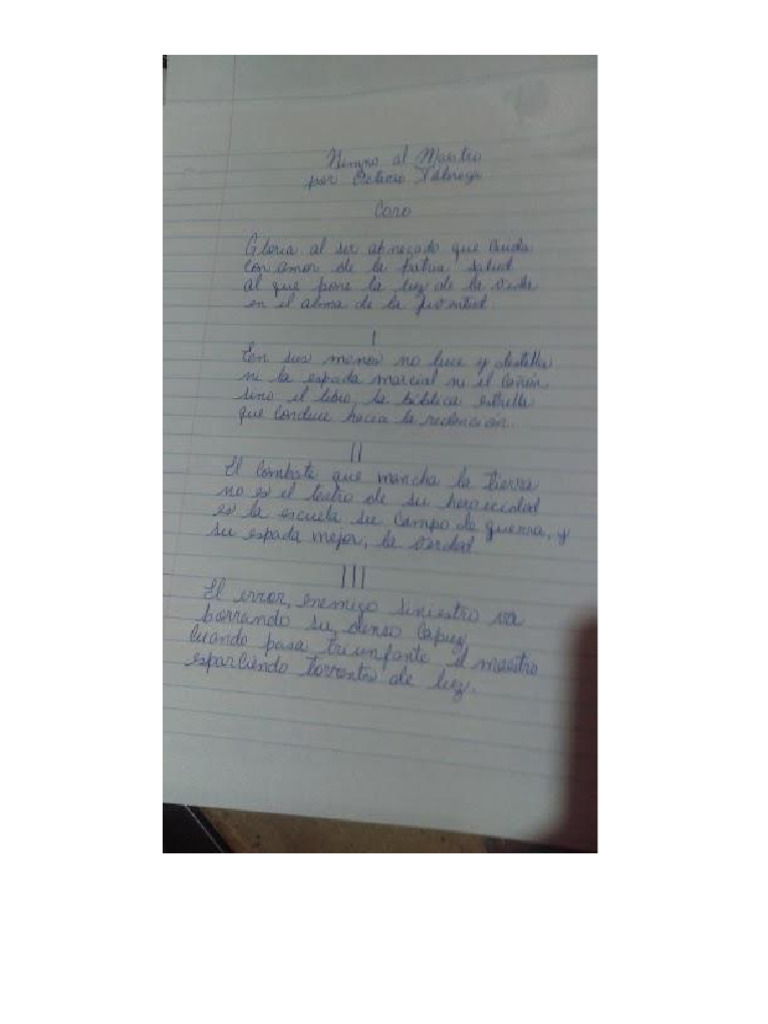 Himno al Maestro
por Octavio Fábrega
Coro
Gloria al ser abnegado que cuida
con amor de la patria salud
al que pone la luz de la vida
en el alma de la juventud
I
En sus manos no luce y destella
ni la espada marcial ni el cañón
sino el libro, la bíblica estrella
que conduce hacia la redención.
II
El combate que mancha la tierra
no es el teatro de su heroicidad
es la escuela su campo de guerra, y
su espada mejor, la verdad
III
El error, enemigo siniestro va
borrando su denso capuz
cuando pasa triunfante el maestro
esparciendo torrentes de luz.